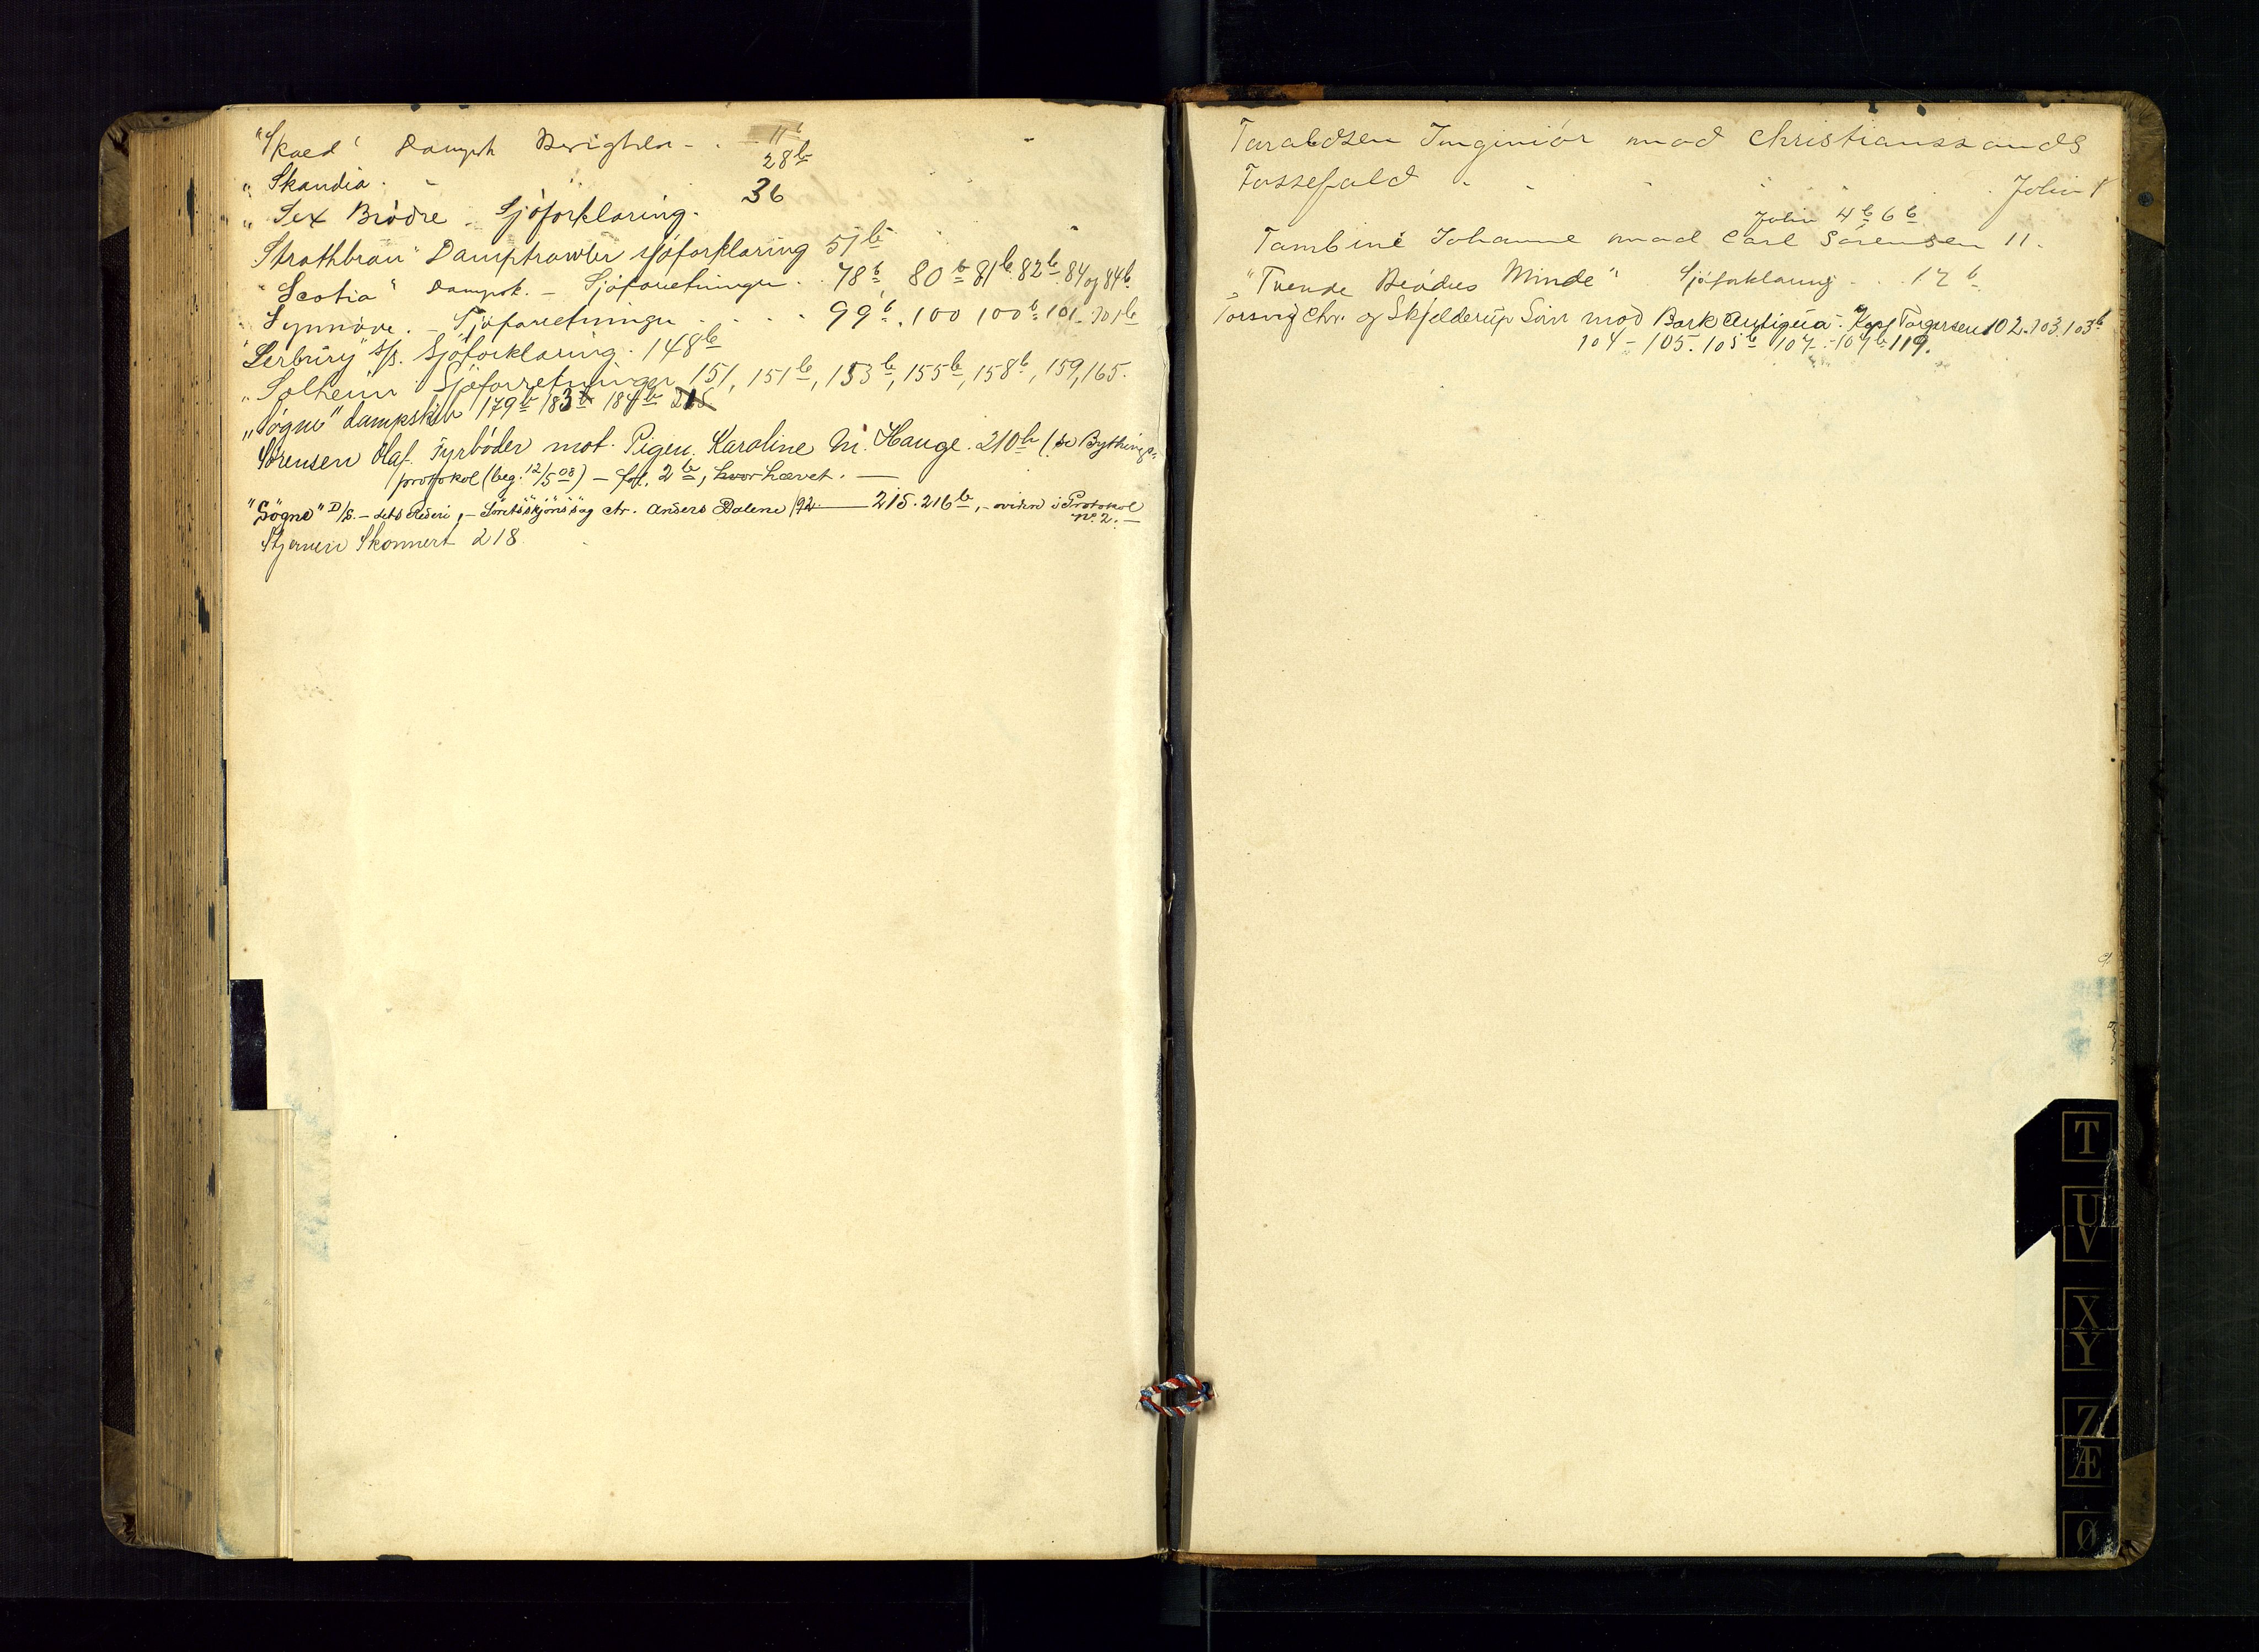 "Skaed" Dampsk - . 11b
" Skandia . - 28b
" Sex Brödre - Sjöforklaring. 36
Strathbran" Damptrawler sjöforklaring 51b
" Scotia" Dampsk. - Sjöforretninger . . 78b, 80b 81b. 82b. 84 og 84b.
" Synnöve. - Sjöforretninger . . . . 99b. 100 100b. 101. 101b
"Serbury" s/s. Sjöforklaring. 148b
"Solheim" Sjöforretninger 151, 151b, 153b, 155b, 158b, 159, 165.
"Søgne" dampskib 179b 183b 184b 215
Sørensen Olaf. Fyrböder mot. Pigen. Karoline M. Hauge. 210b (se Bythings-
protokol (beg. 12/5 08) - fol. 2b, hvor hævet. —
"Sögne" D/S. - dets Rederi, - Söretsskjönssag ctr. Anders Dalene /92 — 215. 216b, - videre i Protokol
No 2. —
Stjernen Skonnert 218
Taraldsen Inginiör mod Christianssands
Fossefald . . . . . Folio 1
Folio 4b 6b
Tambine Johanne mod Carl Sörensen 11.
"Trende Brödres Minde" Sjöforklaring . . 17b
Torsvig Chr. og Skjelderup Sön mod Bark Antigua. Kapt Torgersen 102. 103. 103b
104 - 105. 105b 107 - 107b 119.
T
U
V
X
Y
Z
Æ
Ø